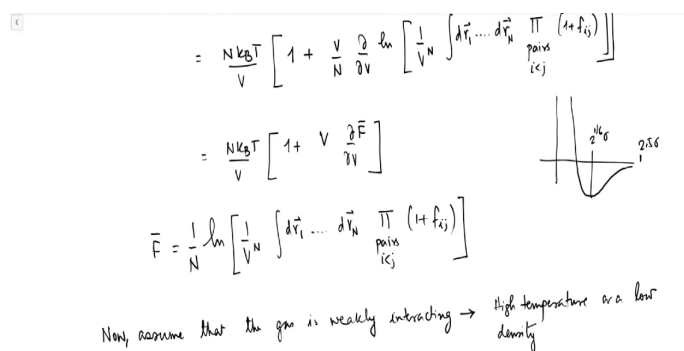 = \frac{N k_B T}{V} [ 1 + \frac{V}{N} \frac{∂}{∂V} ln [ \frac{1}{V^N} ∫ d\vec{r}_1 .... d\vec{r}_N ∏_{pairs i<j} (1+f_{ij}) ] ]
= \frac{N k_B T}{V} [ 1 + V \frac{∂\bar{F}}{∂V} ]
2^{1/6}σ 2.5σ
\bar{F} = \frac{1}{N} ln [ \frac{1}{V^N} ∫ d\vec{r}_1 .... d\vec{r}_N ∏_{pairs i<j} (1+f_{ij}) ]
Now, assume that the gas is weakly interacting → High temperature or a low
density